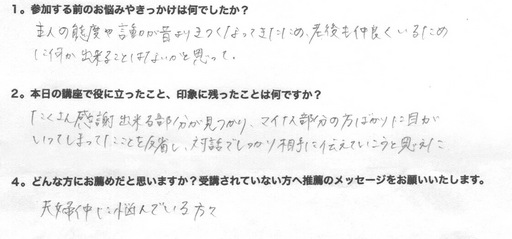 1。参加する前のお悩みやきっかけは何でしたか？
主人の態度や言動が昔よりきつくなってきたため、老後も仲良くいるため
に何か出来ることはないかと思って。
2。本日の講座で役に立ったこと、印象に残ったことは何ですか？
たくさん感謝出来る部分が見つかり、マイナス部分の方ばかりに目が
いってしまってたことを反省し、対話でしっかり相手に伝えていこうと思えた
4。どんな方にお薦めだと思いますか？受講されていない方へ推薦のメッセージをお願いいたします。
夫婦仲に悩んでいる方々